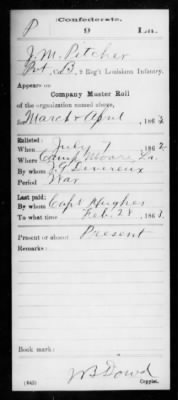 Confederate.
P 9 La.
J. M. Pitcher
Pvt, Co. B, 9 Reg't Louisiana Infantry.
Appears on
Company Muster Roll
of the organization named above,
for March & April, 1863.
Enlisted:
When July 7, 1862.
Where Camp Moore, La.
By whom J G Devereux
Period War
Last paid:
By whom Capt Hughes
To what time Feb. 28, 1863.
Present or absent Present
Remarks:
Book mark:
(642) J B Dowd
Copyist.